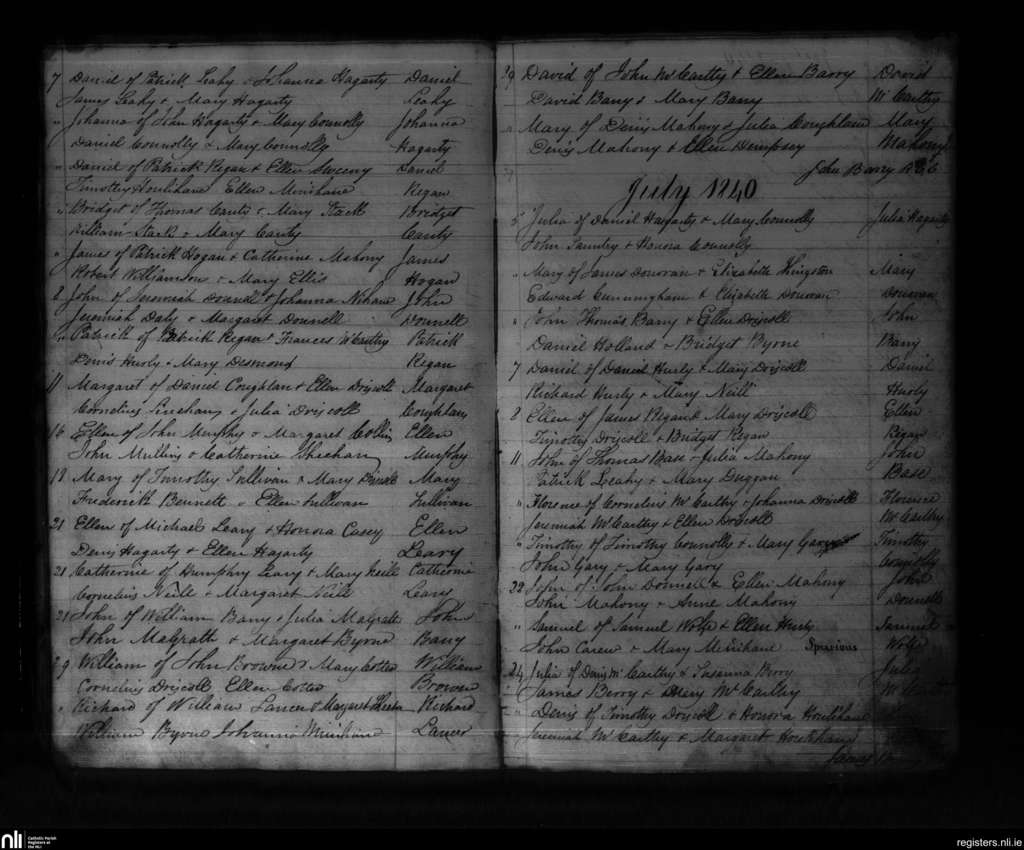 7 Daniel of Patrick Leahy & Johanna Hagarty Daniel
James Leahy & Mary Hagarty Leahy
" Johanna of John Hagarty & Mary Connolly Johanna
Daniel Connolly & Mary Connolly Hagarty
" Daniel of Patrick Regan & Ellen Sweeny Daniel
Timothy Houlihane Ellen Minihane Regan
" Bridget of Thomas Canty & Mary Stack Bridget
William Stack & Mary Canty Canty
" James of Patrick Hogan & Catherine Mahony James
Robert Williamson & Mary Ellis Hogan
8 John of Jeremiah Donnell & Johanna John
Jeremiah Daly & Margaret Donnell Donnell
" Patrick of Patrick Regan & Frances McCarthy Patrick
Denis Hurly & Mary Desmond Regan
11 Margaret of Daniel Coughlan & Ellen Driscoll Margaret
Cornelius Linehan & Julia Driscoll Coughlan
16 Ellen of John Murphy & Margaret Collins Ellen
John Mullins & Catherine Sheehan Murphy
19 Mary of Timothy Sullivan & Mary Driscoll Mary
Frederick Bennett & Ellen Sullivan Sullivan
21 Ellen of Michael Leary & Honora Casey Ellen
Deny Hagarty & Ellen Hagarty Leary
21 Catherine of Humphry Leary & Mary Neill Catherine
Cornelius Neill & Margaret Neill Leary
21 John of William Barry & Julia Magrath John
John Magrath & Margaret Byrne Barry
29 William of John Browne & Mary Cotter William
Cornelius Driscoll Ellen Cotter Browne
" Richard of William Lancer & Margaret Richard
William Byrne Johanna Minihane Lancer
29 David of John McCarthy & Ellen Barry David
David Barry & Mary Barry McCarthy
" Mary of Denis Mahony & Julia Coughlane Mary
Denis Mahony & Ellen Dempsey Mahony
John Barry
July 1840
5 Julia of Daniel Hagarty & Mary Connolly Julia Hagarty
John & Honora Connolly
" Mary of James Donovan & Elizabeth Mary
Edward Cunningham & Elizabeth Donovan Donovan
" John Thomas Barry & Ellen Driscoll John
Daniel Holland & Bridget Byrne Barry
7 Daniel of Daniel Hurly & Mary Driscoll Daniel
Richard Hurly & Mary Neill Hurly
8 Ellen of James Regan & Mary Driscoll Ellen
Timothy Driscoll & Bridget Regan Regan
11 John of Thomas Base & Julia Mahony John
Patrick Leahy & Mary Duggan Base
" Florence of Cornelius McCarthy & Johanna Driscoll Florence
Jeremiah McCarthy & Ellen Driscoll McCarthy
" Timothy of Timothy Connolly & Mary Timothy
John Gary & Mary Gary Connolly
22 John of John Donnell & Ellen Mahony John
John Mahony & Anne Mahony Donnell
" Samuel of Samuel Wolfe & Ellen Hurly Samuel
John Carew & Mary Minihane Spurious Wolfe
24 Julia of Deny McCarthy & Susanna Berry Julia
James Berry & Mary McCarthy
" Denis of Timothy Driscoll & Honora Houlihane
Jeremiah McCarthy & Margaret Houlihane
James
nli Catholic Parish Registers at the NLI
registers.nli.ie